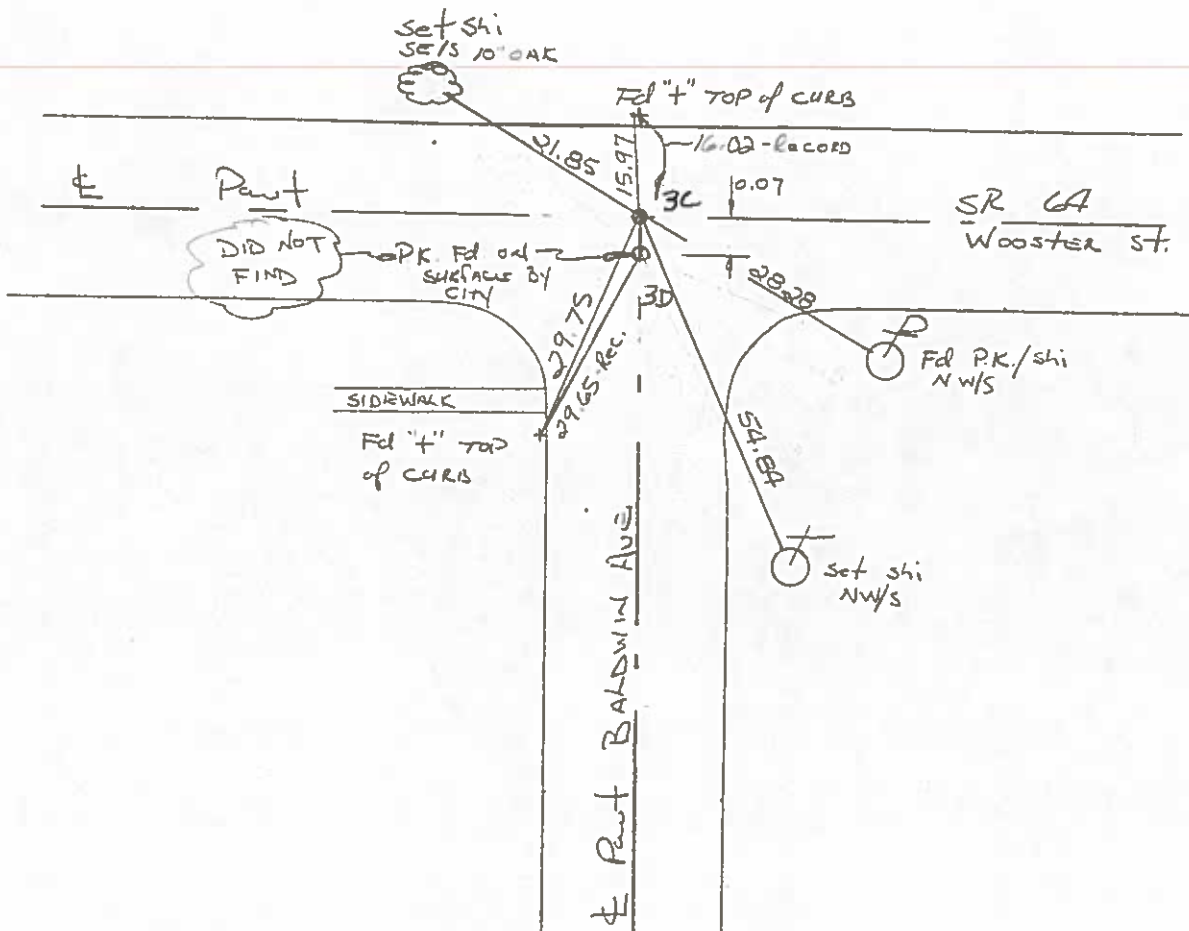 Set shi
SE/S 10" OAK
Fd "+" TOP of CURB
16.02-Record
31.85
15.97
0.07
3C
℄ Pavt
SR 64
WOOSTER ST.
DID NOT
FIND
P.K. Fd on
SURFACE BY
CITY
3D
28.28
29.75
29.65-Rec.
Fd P.K./shi
NW/S
SIDEWALK
Fd "+" TOP
of CURB
54.84
Set shi
NW/S
℄ Pavt BALDWIN AVE